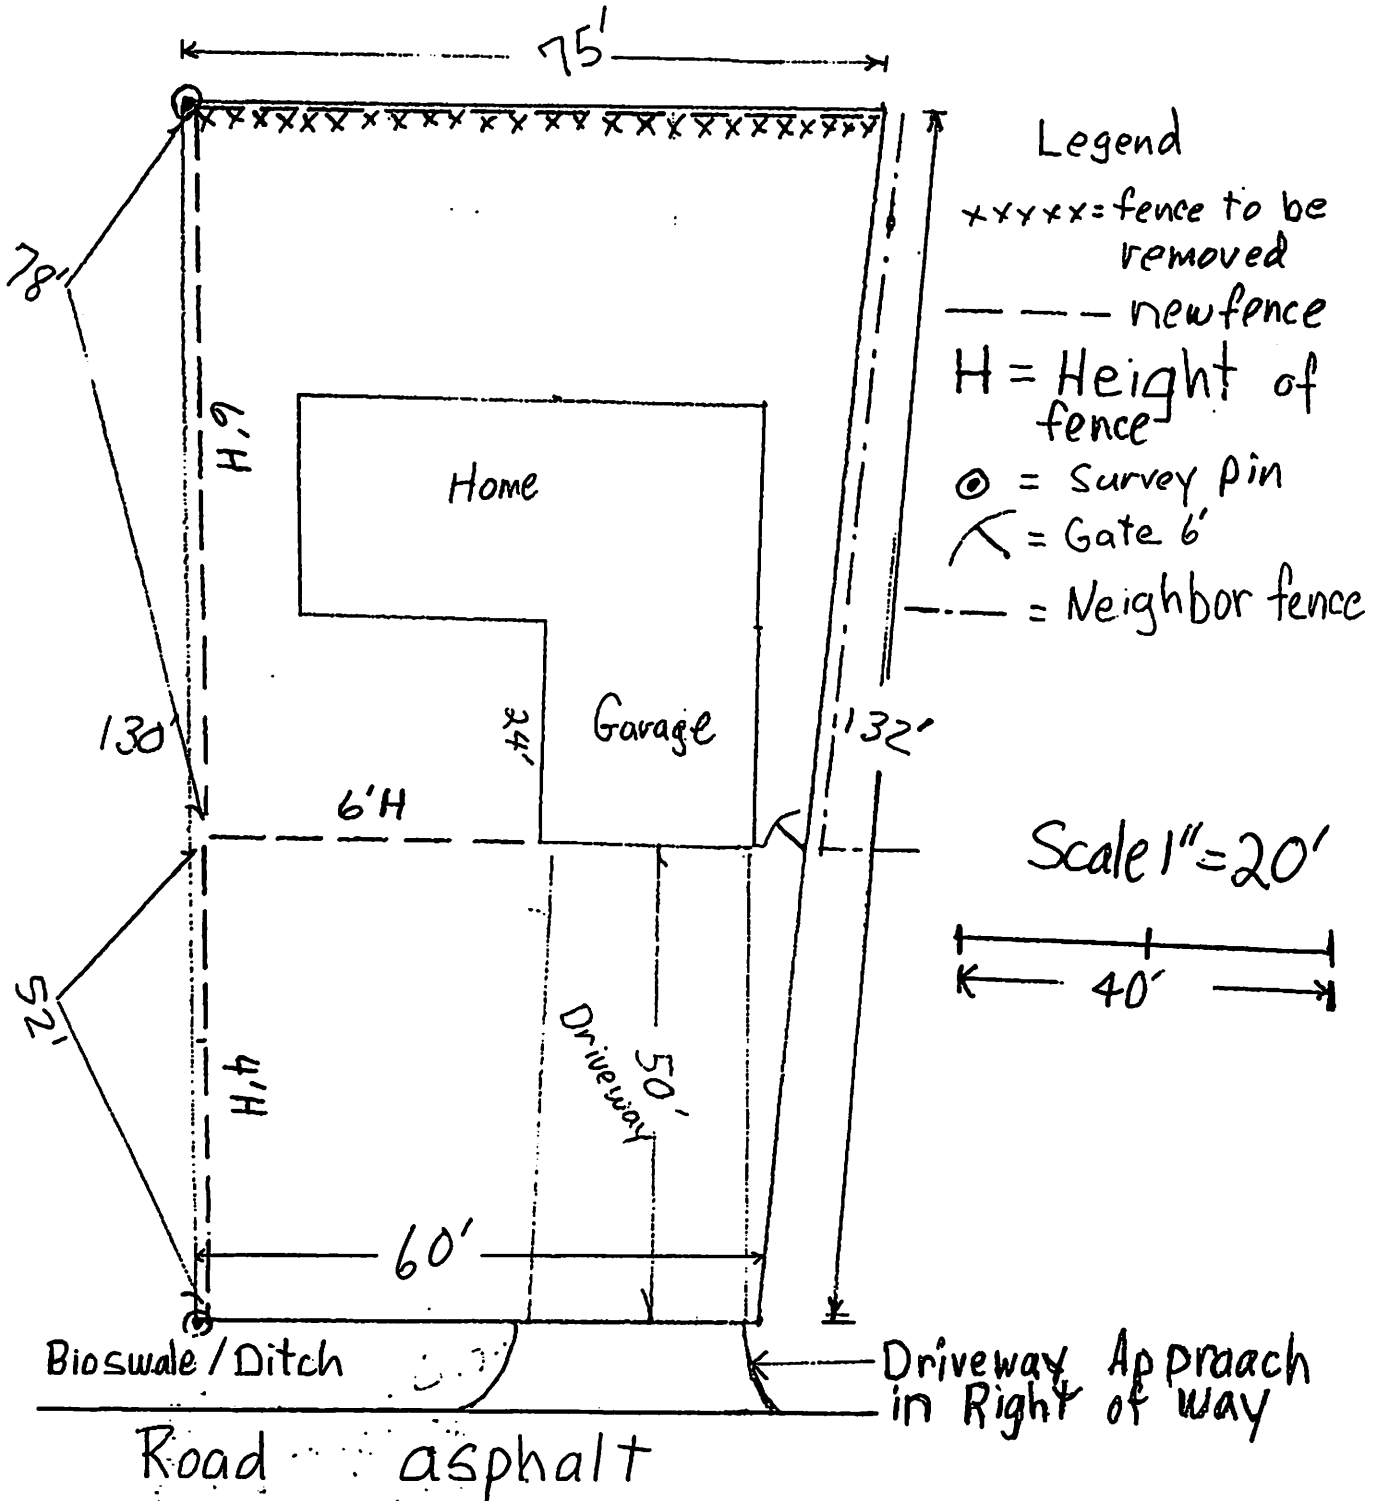 75'
Legend
xxxxx = fence to be
removed
— — — new fence
H = Height of
fence
= Survey pin
= Gate 6'
= Neighbor fence
78'
6'H
Home
24'
Garage
130'
132'
6'H
Scale 1" = 20'
40'
52'
4'H
Driveway
50'
60'
Bioswale / Ditch
Driveway Appraach
in Right of Way
Road asphalt